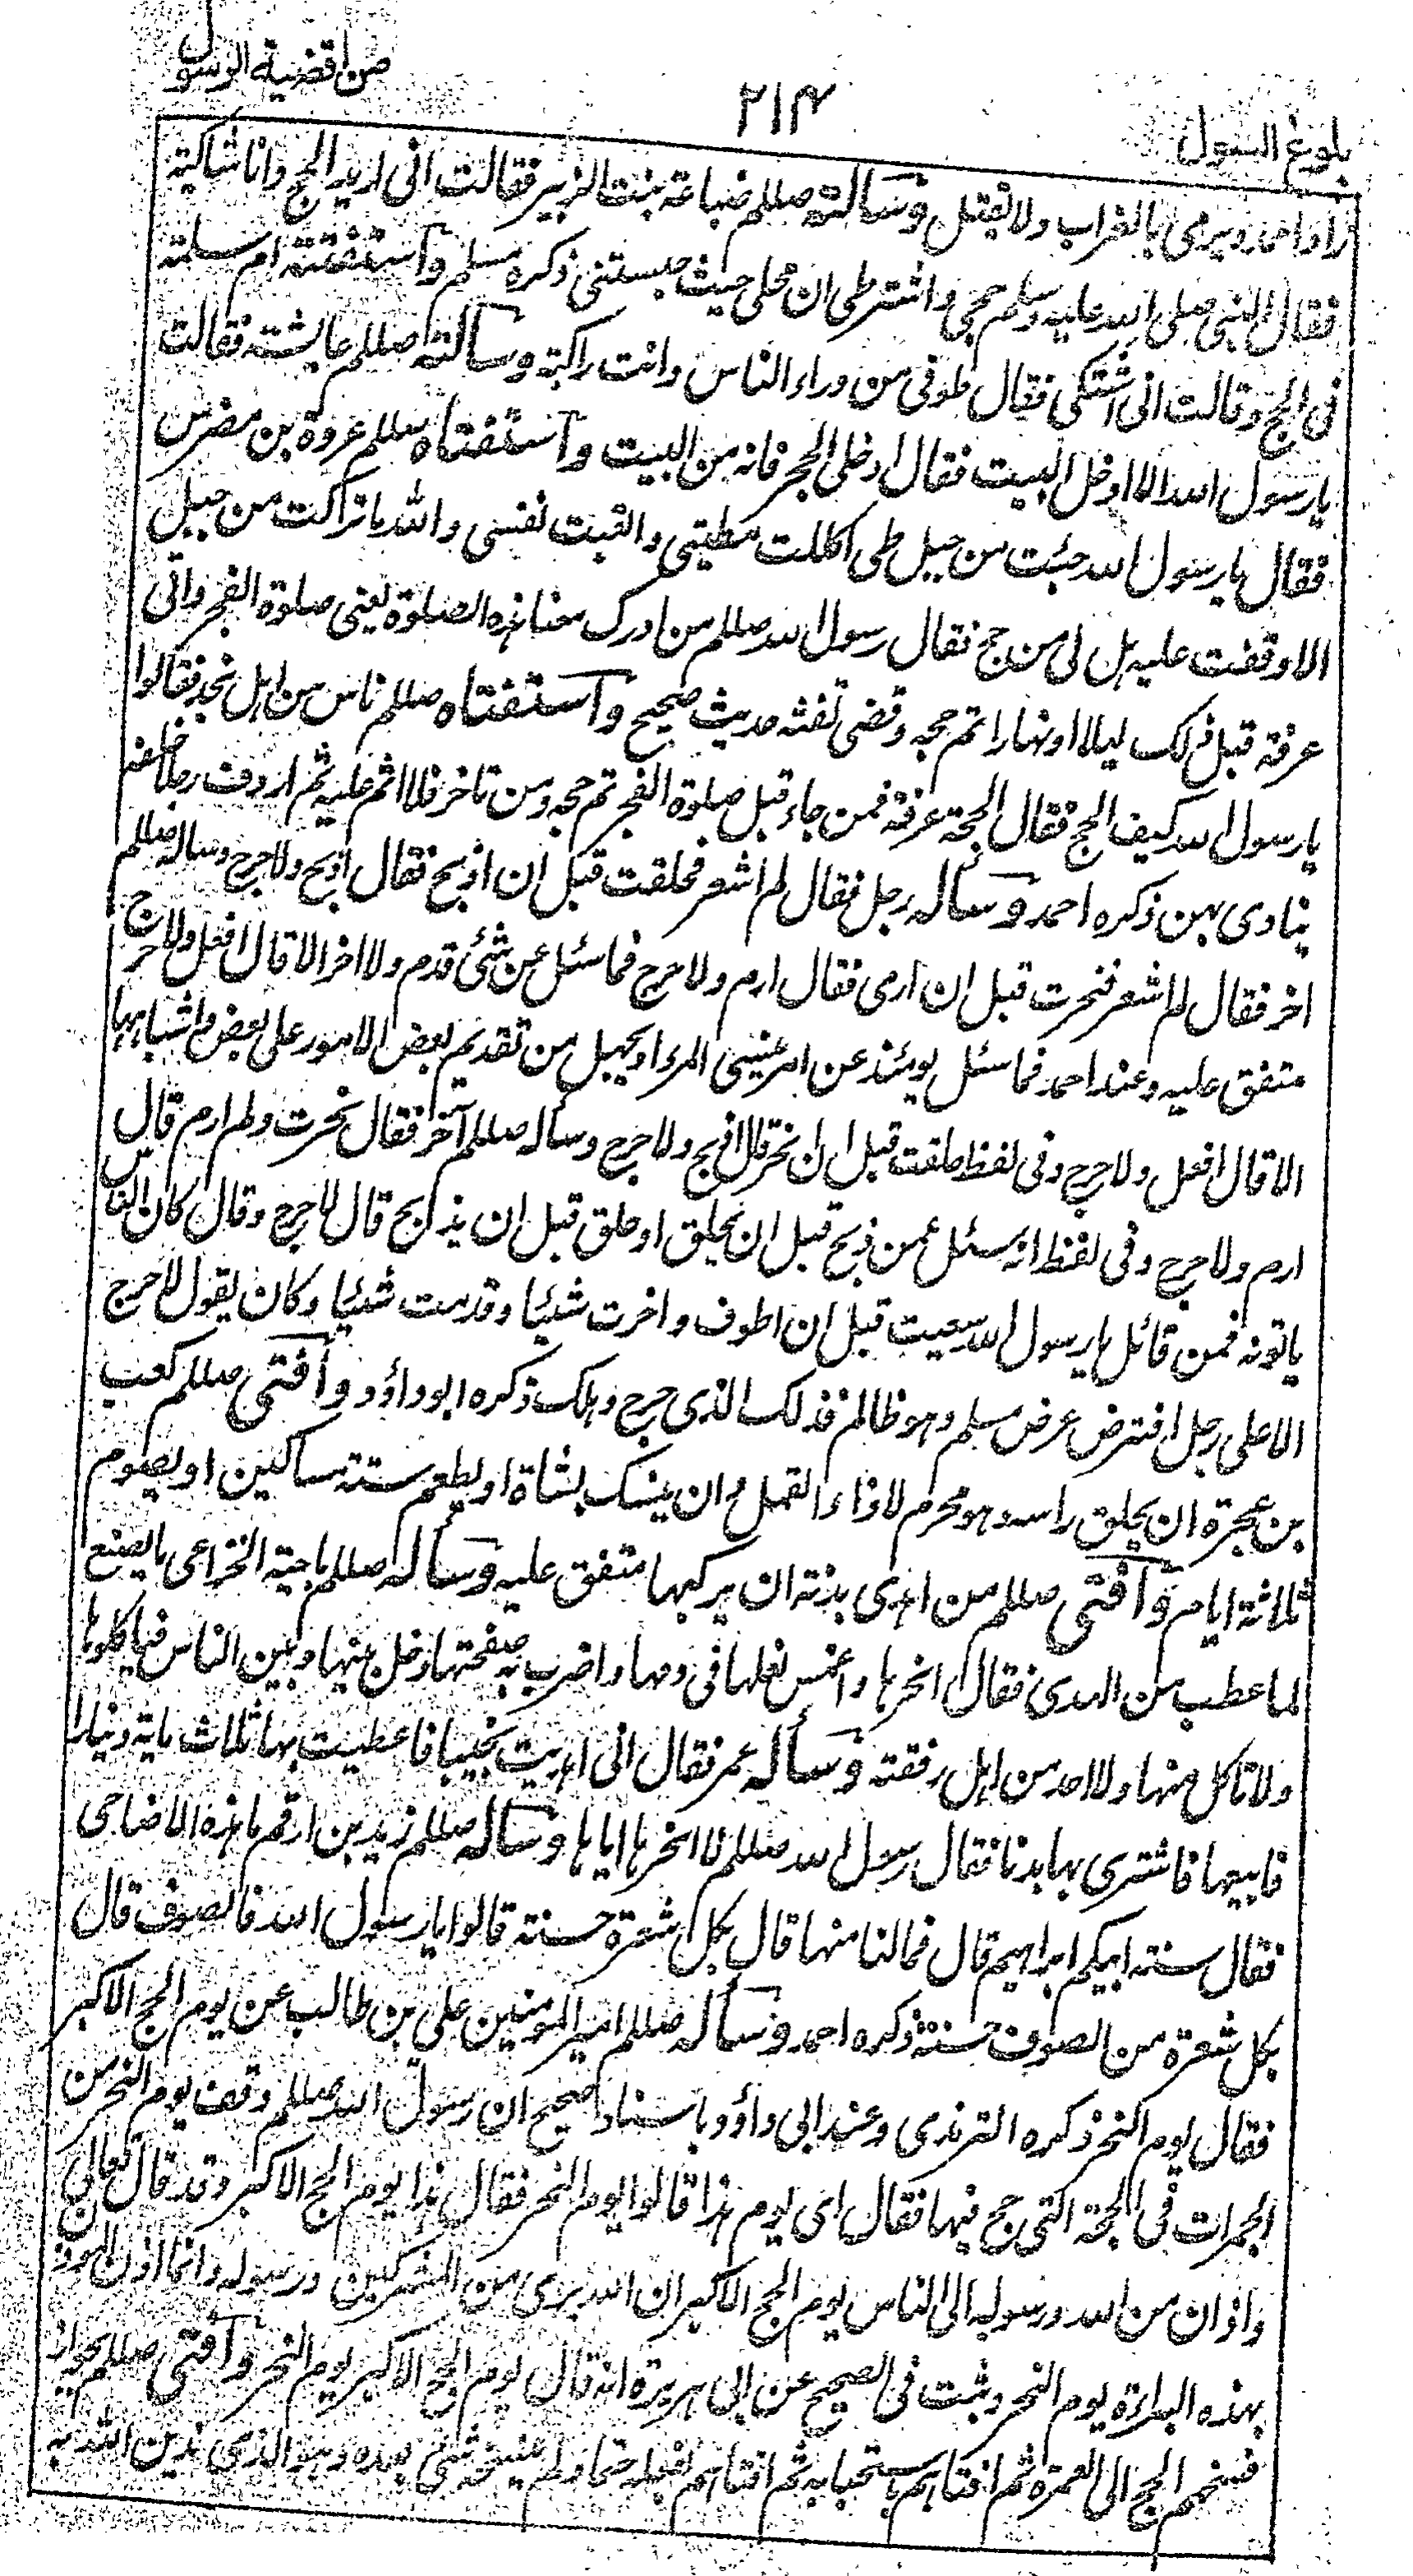 بلوغ السول
۲۱۴
من اقضیة الرسول
زاد احمد ویرمی بالغراب ولا یقتل وسألته صللم ضباعة بنت الزبیر فقالت انی ارید الحج وانا شاکیة
فقال النبی صلی الله علیه وسلم حجی واشترطی ان محلی حیث حبستنی ذکره مسلم واستفتته ام سلمة
فی الحج وقالت انی اشتکی فقال طوفی من وراء الناس وانت راکبة وسألته صللم عایشة فقالت
یا رسول الله الا ادخل البیت فقال ادخلی الحجر فانه من البیت واستفتاه صللم عروة بن مضرس
فقال یا رسول الله جئت من جبل طی اکللت مطیتی واتعبت نفسی والله ما ترکت من جبل
الا وقفت علیه هل لی من حج فقال رسول الله صللم من ادرک معنا هذه الصلوة یعنی صلوة الفجر واتی
عرفة قبل ذلک لیلا او نهارا تم حجه وقضی تفثه حدیث صحیح واستفتاه صللم ناس من اهل نجد فقالوا
یا رسول الله کیف الحج فقال الحجة عرفة فمن جاء قبل صلوة الفجر تم حجه ومن تاخر فلا اثم علیه ثم اردف رجلا خلفه
ینادی بهن ذکره احمد وسأله رجل فقال لم اشعر فحلقت قبل ان اذبح فقال اذبح ولا حرج وساله صللم
اخر فقال لم اشعر فنحرت قبل ان ارمی فقال ارم ولا حرج فما سئل عن شئ قدم ولا اخر الا قال افعل ولا حرج
متفق علیه وعند احمد فما سئل یومئذ عن امر ینسی المرء او یجهل من تقدیم بعض الامور علی بعض واشباهها
الا قال افعل ولا حرج وفی لفظ حلقت قبل ان انحر قال اذبح ولا حرج وسأله صللم آخر فقال نحرت ولم ارم قال
ارم ولا حرج وفی لفظ انه سئل عمن ذبح قبل ان یحلق او حلق قبل ان یذبح قال لا حرج وقال کان الناس
یاتونه فمن قائل یا رسول الله سعیت قبل ان اطوف واخرت شیئا وقدمت شیئا وکان یقول لا حرج
الا علی رجل افترض عرض مسلم وهو ظالم فذلک الذی حرج وهلک ذکره ابو داؤد وأفتی صللم کعب
بن عجرة ان یحلق راسه وهو محرم لاذاء القمل وان ینسک بشاة او یطعم ستة مساکین او یصوم
ثلاثة ایام وأفتی صللم من اهدی بدنة ان یرکبها متفق علیه وسأله صللم ناجیة الخزاعی ما یصنع
لما عطب من الهدی فقال انحرها واغمس نعلها فی دمها واضرب به صفحتها وخل بینها وبین الناس فیاکلوها
ولا تاکل منها ولا احد من اهل رفقته وسأله عمر فقال انی اهدیت نجیبا فاعطیت بها ثلاث مایة دینارا
فابیعها فاشتری بها بدنا فقال رسول الله صللم لا انحرها ایاها وسأله صللم زید بن ارقم ما هذه الاضاحی
فقال سنة ابیکم ابراهیم قال فمالنا منها قال بکل شعرة حسنة قالوا یا رسول الله فالصوف قال
بکل شعرة من الصوف حسنة ذکره احمد وسأله صللم امیر المومنین علی بن طالب عن یوم الحج الاکبر
فقال یوم النحر ذکره الترمذی وعند ابی داؤد باسناد صحیح ان رسول الله صللم وقف یوم النحر من
الجمرات فی الحجة التی حج فیها فقال ای یوم هذا قالوا یوم النحر فقال هذا یوم الحج الاکبر وقد قال تعالی
واذان من الله ورسوله الی الناس یوم الحج الاکبر ان الله بری من المشرکین ورسوله وانما اذن الموذن
بهذه البراءة یوم النحر وثبت فی الصحیح عن ابی هریرة انه قال یوم الحج الاکبر یوم النحر وأفتی صللم بجواز
فسخهم الحج الی العمرة ثم افتاهم باستحبابه ثم افتاهم بفعله حتما ولم ینسخه شئ بعده وهو الذی ندین الله به